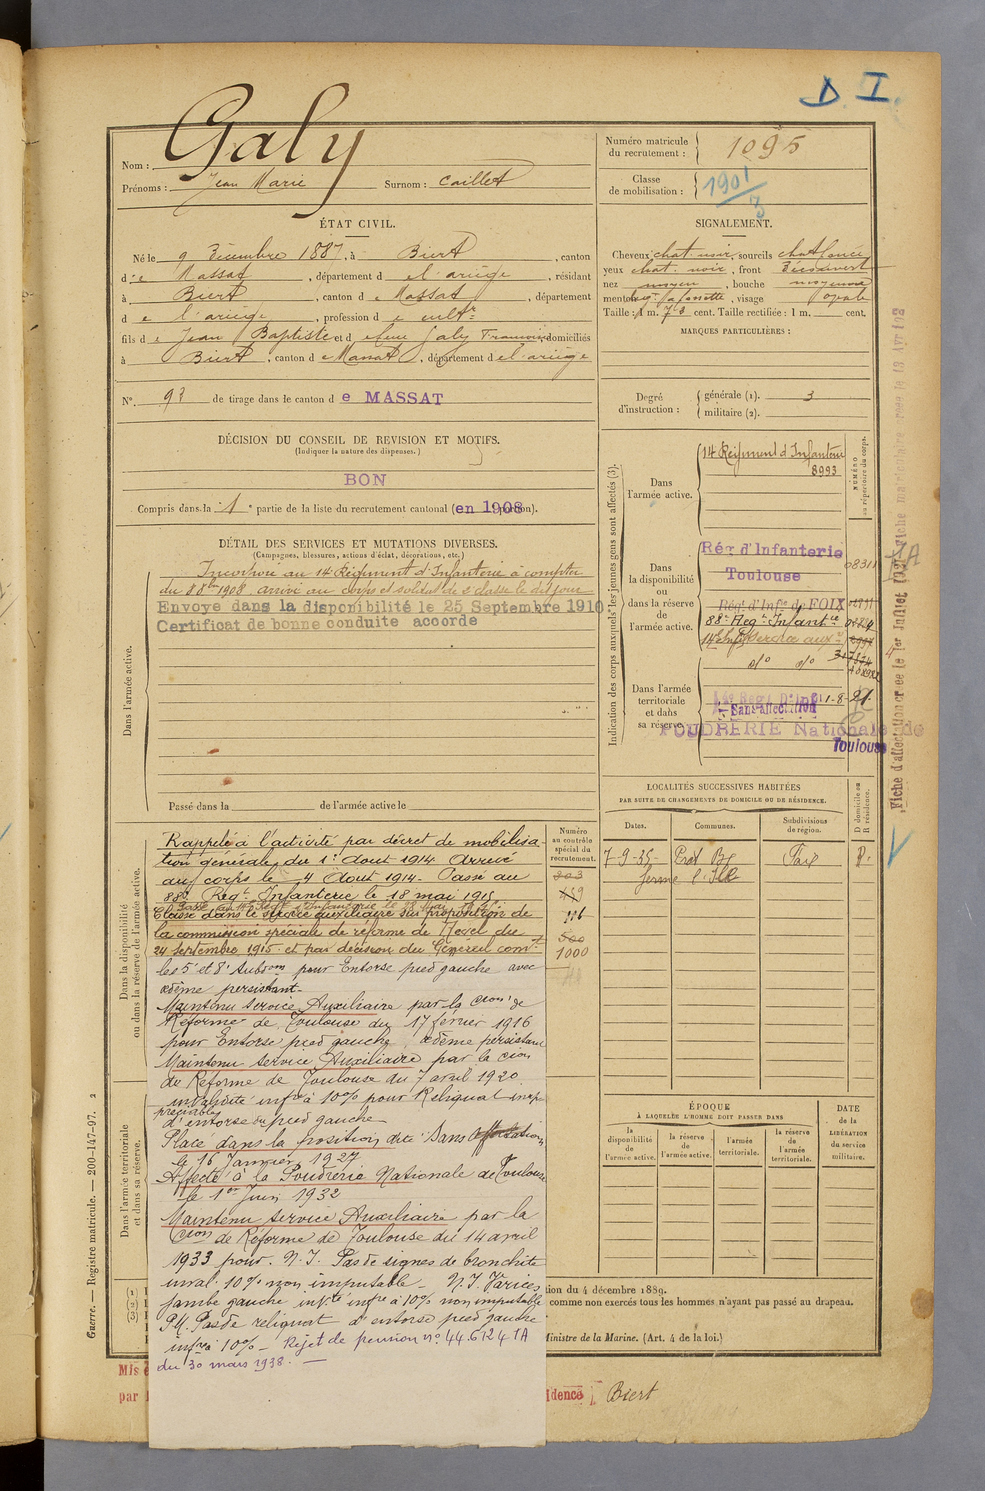 D. I.
Galy
Nom :
Prénoms : Jean Marie Surnom : Caillet
Numéro matricule du recrutement : 1095
Classe de mobilisation : 1901/3
ÉTAT CIVIL.
Né le 9 Décembre 1887, à Biert, canton
de Massat, département de l'ariège, résidant
à Biert, canton de Massat, département
de l'ariège, profession de cultr
fils de Jean Baptiste et de feue Galy Françoise domiciliés
à Biert, canton de Massat, département de l'ariège
N°. 93 de tirage dans le canton de MASSAT
SIGNALEMENT.
Cheveux chat. noir, sourcils chat. foncé
yeux chat. noir, front Découvert
nez moyen, bouche moyenne
menton à fossette, visage ovale
Taille : 1 m. cent. Taille rectifiée : 1 m. cent.
MARQUES PARTICULIÈRES :
Degré d'instruction : générale (1). 3
militaire (2).
DÉCISION DU CONSEIL DE REVISION ET MOTIFS.
(Indiquer la nature des dispenses.)
BON
Compris dans la 1e partie de la liste du recrutement cantonal (en 1908
DÉTAIL DES SERVICES ET MUTATIONS DIVERSES.
(Campagnes, blessures, actions d'éclat, décorations, etc.)
Dans l'armée active.
Incorporé au 14e Régiment d'Infanterie à compter
du 8 8bre 1908 arrivé au corps et soldat de 2e classe le dit jour
Envoye dans la disponibilité le 25 Septembre 1910
Certificat de bonne conduite accorde
Passé dans la de l'armée active le
Indication des corps auxquels les jeunes gens sont affectés (3).
NUMÉRO au répertoire du corps.
Dans l'armée active.
14e Régiment d'Infanterie
8993
Dans la disponibilité ou dans la réserve de l'armée active.
Rég d'Infanterie
Toulouse
08311
Rég. d'Infie de FOIX
88e Régt Infantce
do do
Dans l'armée territoriale et dans sa réserve.
14e Rég. D'Inf. 1-8-21
Sans affectation
POUDRERIE Nationale de
Toulouse
Fiche d'affectation créée le 1er Juillet
Fiche matriculaire créée le 13 Avr 192
LOCALITÉS SUCCESSIVES HABITÉES
PAR SUITE DE CHANGEMENTS DE DOMICILE OU DE RÉSIDENCE.
Dates. Communes. Subdivisions de région. D domicile ou R résidence.
7-9-35- Foix R.
Numéro au contrôle spécial du recrutement.
203
116
500
1000
Dans la disponibilité ou dans la réserve de l'armée active.
Rappelé à l'activité par décret de mobilisa-
tion générale du 1er Aout 1914 Arrivé
au corps le 4 Aout 1914. Passé au
88e Régt Infanterie le 18 mai 1915
Classé dans le service auxiliaire sur proposition de
la commission spéciale de réforme de du
24 septembre 1915 et par décision du Général comt
les 5e et 8e Subsons pour Entorse pied gauche avec
œdème persistant.
Maintenu Service Auxiliaire par la Cion de
Réforme de Toulouse du 17 février 1916
pour Entorse pied gauche, œdème persistant
Maintenu Service Auxiliaire par la Cion
de Réforme de Toulouse du 7 avril 1920
invalidité infre à 10% pour Reliquat inap-
préciable
d'entorse du pied gauche
Placé dans la position dite "Sans Affectation
le 16 Janvier 1927
Affecté à la Poudrerie Nationale de Toulouse
le 1er Juin 1932
Maintenu Service Auxiliaire par la
Cion de Réforme de Toulouse du 14 avril
1933 pour. N.I. Pas de signes de bronchite
inval. 10% non imputable - N.I. Varices
jambe gauche invté infre à 10% non imputable
P.M. Pas de reliquat d'entorse pied gauche
infre à 10% - Rejet de pension n°. 44.6124 1A
du 30 mars 1938. —
Dans l'armée territoriale et dans sa réserve.
ÉPOQUE
À LAQUELLE L'HOMME DOIT PASSER DANS
la disponibilité de l'armée active.
la réserve de l'armée active.
l'armée territoriale.
la réserve de l'armée territoriale.
DATE de la LIBÉRATION du service militaire.
Guerre. — Registre matricule. — 200-147-97. 2
(1)
(2)
(3)
tion du 4 décembre 1889.
comme non exercés tous les hommes n'ayant pas passé au drapeau.
Ministre de la Marine. (Art. 4 de la loi.)
Mis e
par
idence Biert